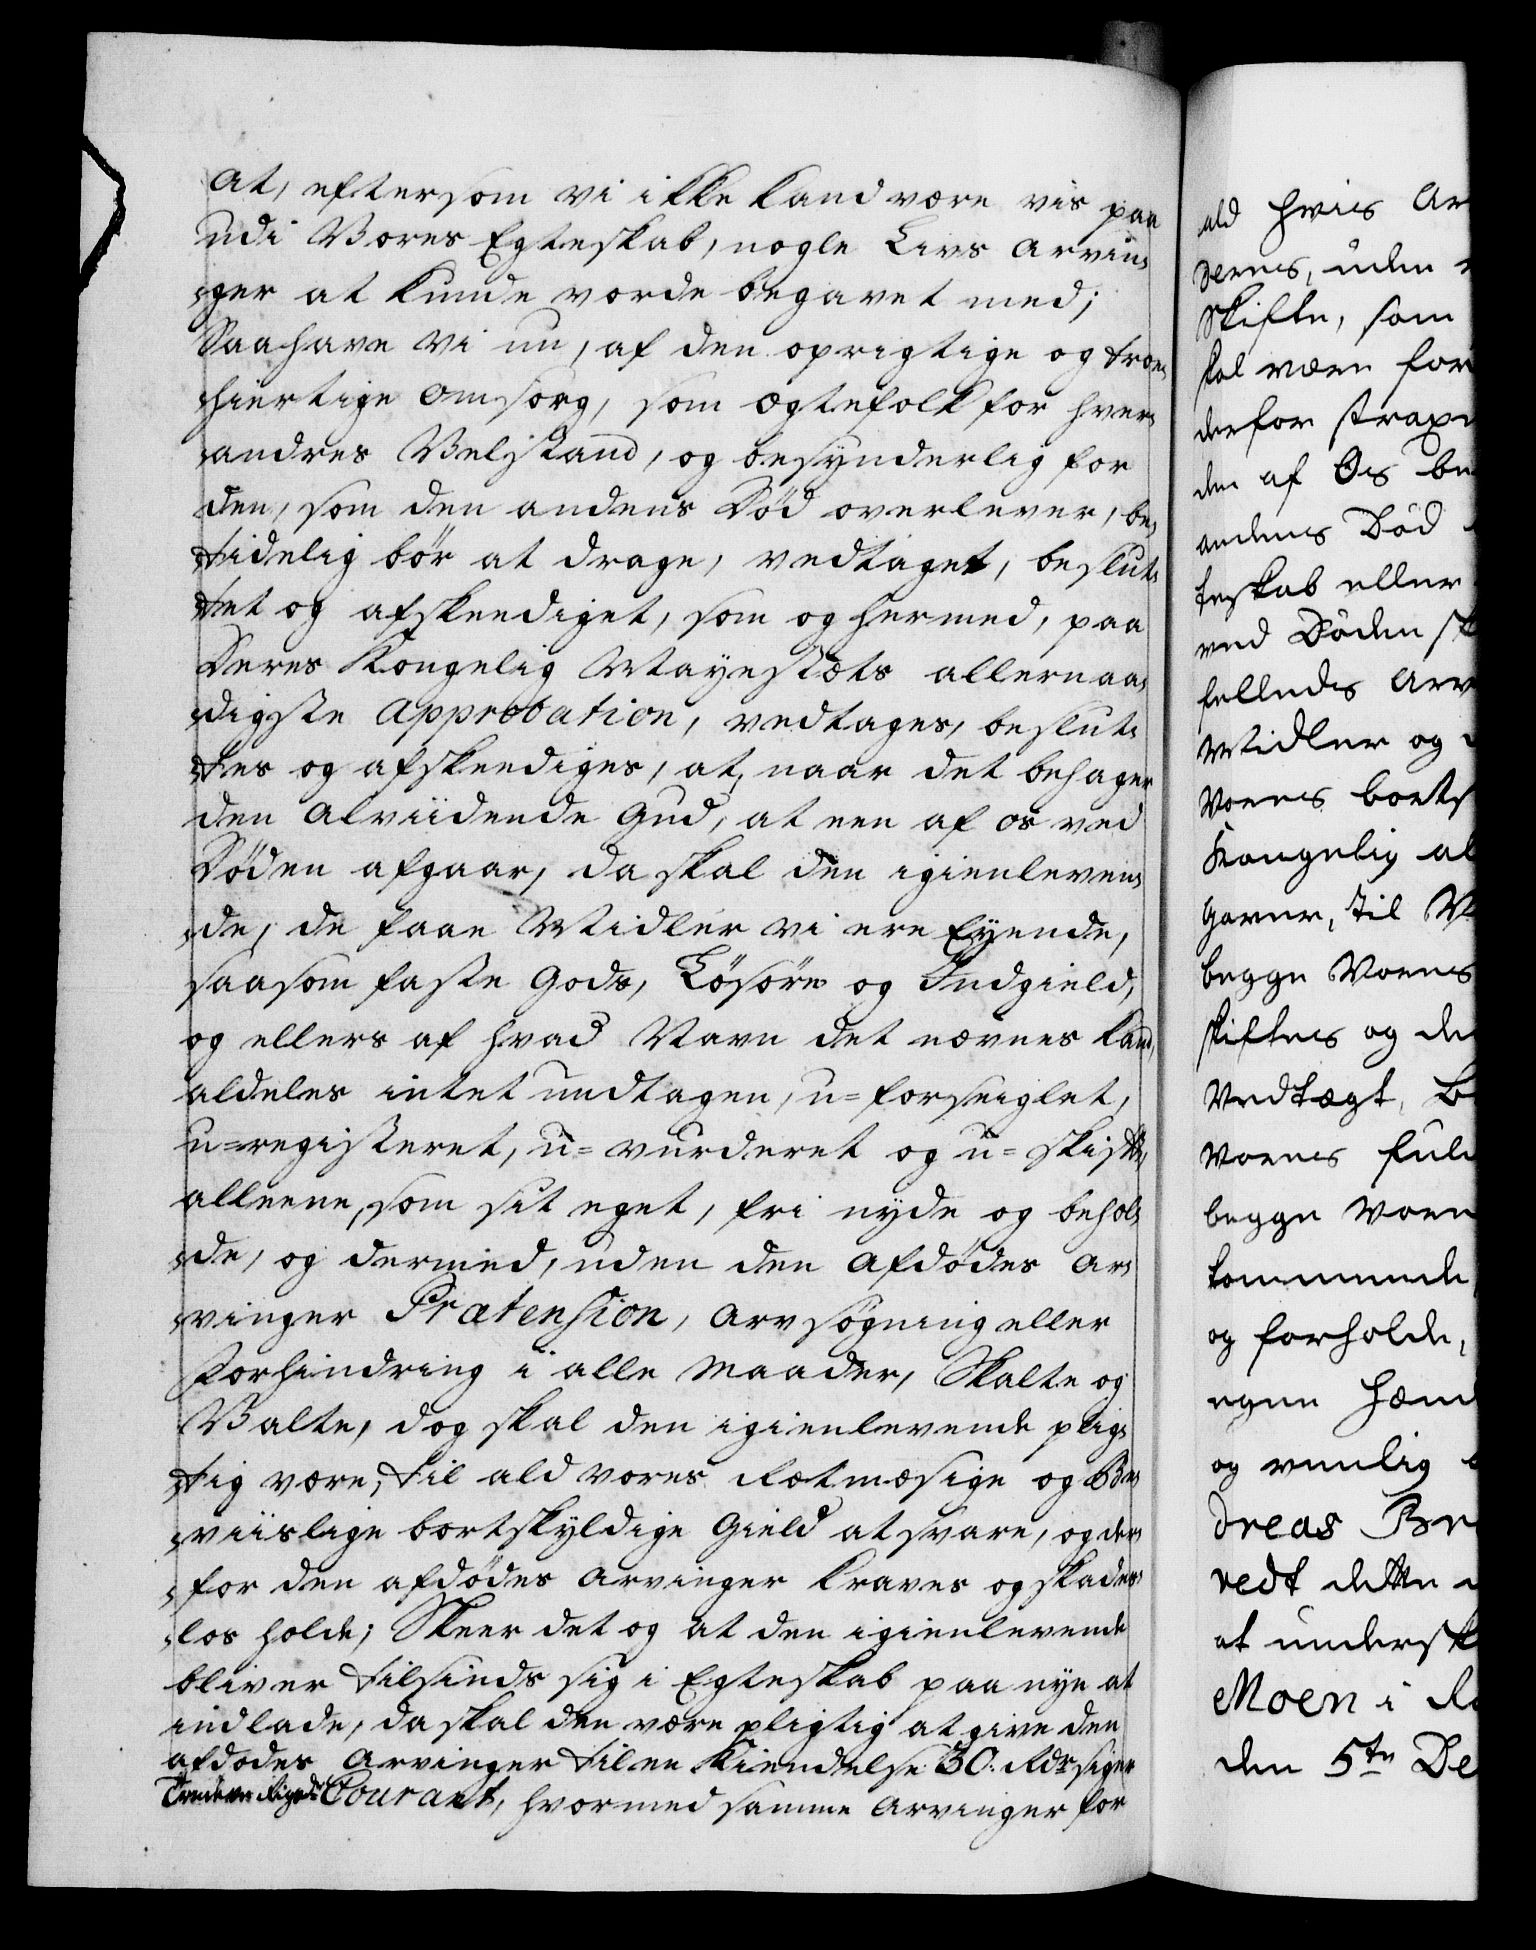 at, eftersom vi ikke kand være vis paa
udi Vores Egteskab, nogle Livs Arvin-
-ger at kunde vorde begavet med;
Saa have vi nu, af den oprigtige og troe-
-hiertige Omsorg, som Ægtefolk for hver-
-andres Velstand, og besynderlig for
den, som den andens Död overlever, be-
-tidelig bör at drage, vedtaget, beslut-
-tet og afskeediget, som og hermed, paa
Deres Kongelig Mayestæts allernaa-
-digste Approbation, vedtages, beslut-
-tes og afskeediges, at, naar det behager
den Alviidende Gud, at een af os ved
Döden afgaar, da skal den igienleven-
-de, de faae Midler vi ere Eyende,
saasom faste Gods, Lösöre og Indgield,
og ellers af hvad Navn det nævnes kand,
aldeles intet undtagen, u=forseiglet,
u=registeret, u=vurderet og u=skift,
alleene, som sit eget, fri nyde og behol-
-de, og dermed, uden den Afdödes Ar-
-vinger Prætension, Arvsögning eller
Forhindring i alle Maader, Skalte og
Valte, dog skal den igienlevende plig-
-tig være, til ald vores Retmæsige og Be-
-viislige bortskyldige Gield at svare, og der-
-for den afdödes Arvinger kraves og skades-
-los holde; Skeer det og at den igienlevende
bliver tilsinds sig i Egteskab paa nye at
indlade, da skal den være pligtig at give den
afdödes Arvinger til en Kiendelse 30. Rdr siger
Tredeve Rigsdr Courant, hvormed samme Arvinger for
ald hvis Ar
deres, uden
Skifte, som
skal være for
derfor strax
den af Os be
andens Död
teskab eller
ved Döden
felleds Arv
Midler og
Vores borts
Kongelig al
Gaver, til
begge Vores
skiftes og de
Vedtægt, B
Vores ful
begge Vore
kommende
og forholde,
egne Hæn
og venlig
dreas Br
vedt dette
at undersk
Moen i
den 5te De